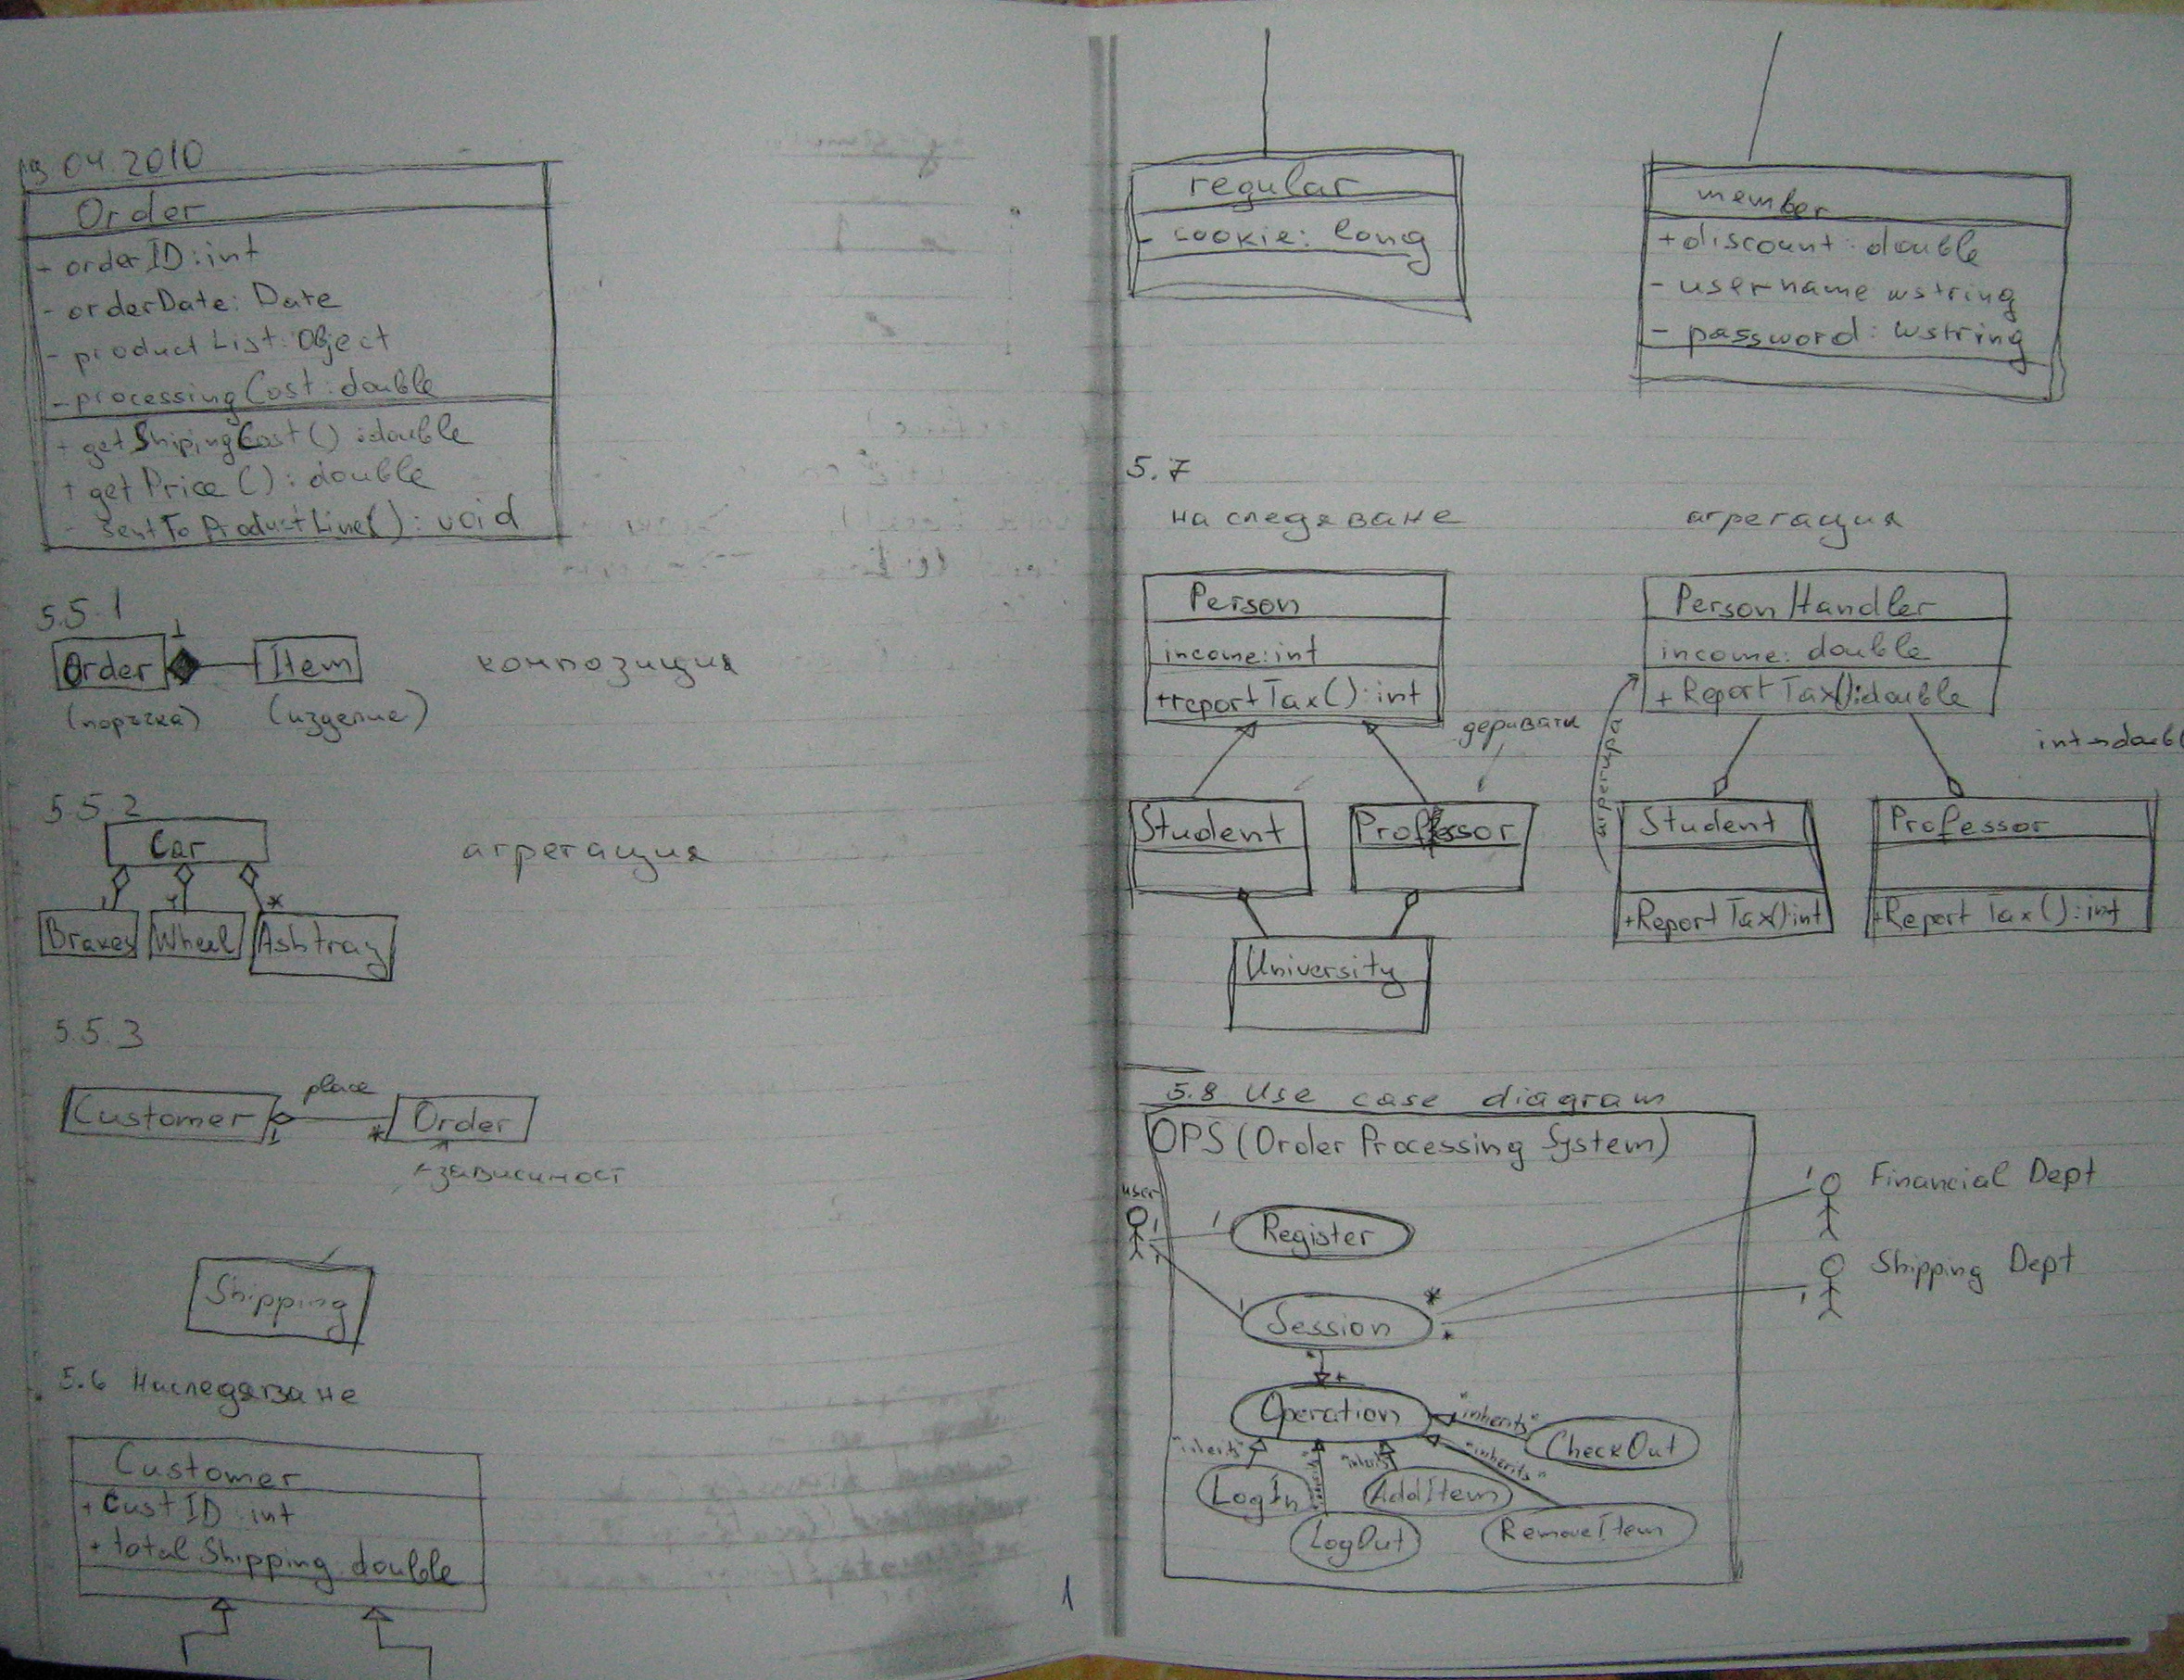 04.2010
Order
+ orderID:int
- orderDate: Date
- productList:Object
- processingCost:double
+ getShipingCost() :double
+ getPrice(): double
- SentToProductLine(): void
5.5.1
1
Order
Item
композиция
(поръчка)
(изделие)
5.5.2
Car
агрегация
*
Brakes
Wheel
Ashtray
5.5.3
place
Customer
1
*
Order
зависимост
Shipping
5.6 Наследяване
Customer
+ CustID:int
+ total Shipping:double
1
regular
- cookie: long
member
+discount: double
- username wstring
- password: wstring
5.7
наследяване
агрегация
Person
income:int
+reportTax(): int
деривати
Student
Professor
University
PersonHandler
income: double
+ ReportTax():double
агрегира
Student
+ReportTax():int
Professor
+Report Tax(): int
5.8 Use case diagram
OPS (Order Processing System)
user
1
1
Register
1
1
Session
*
*
1
Financial Dept
1
Shipping Dept
Operation
"inherits"
CheckOut
"inherits"
LogIn
"inherits"
LogOut
"inherits"
AddItem
"inherits"
RemoveItem